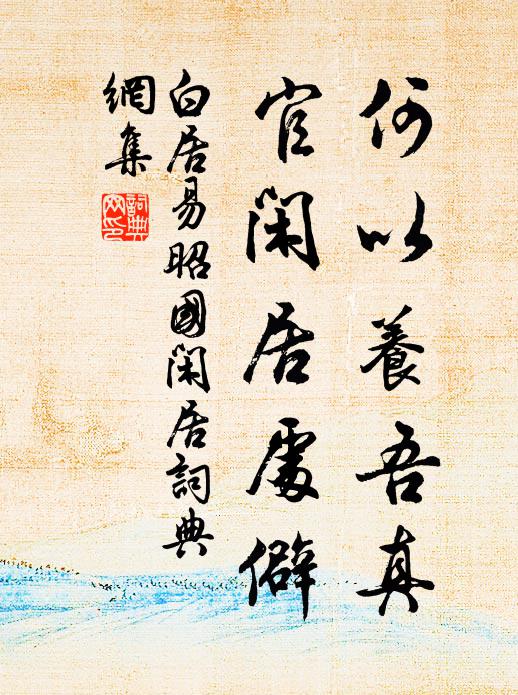 何以養吾真
官閑居處僻
白居易昭國閑居詞典
網集
詞典
网印